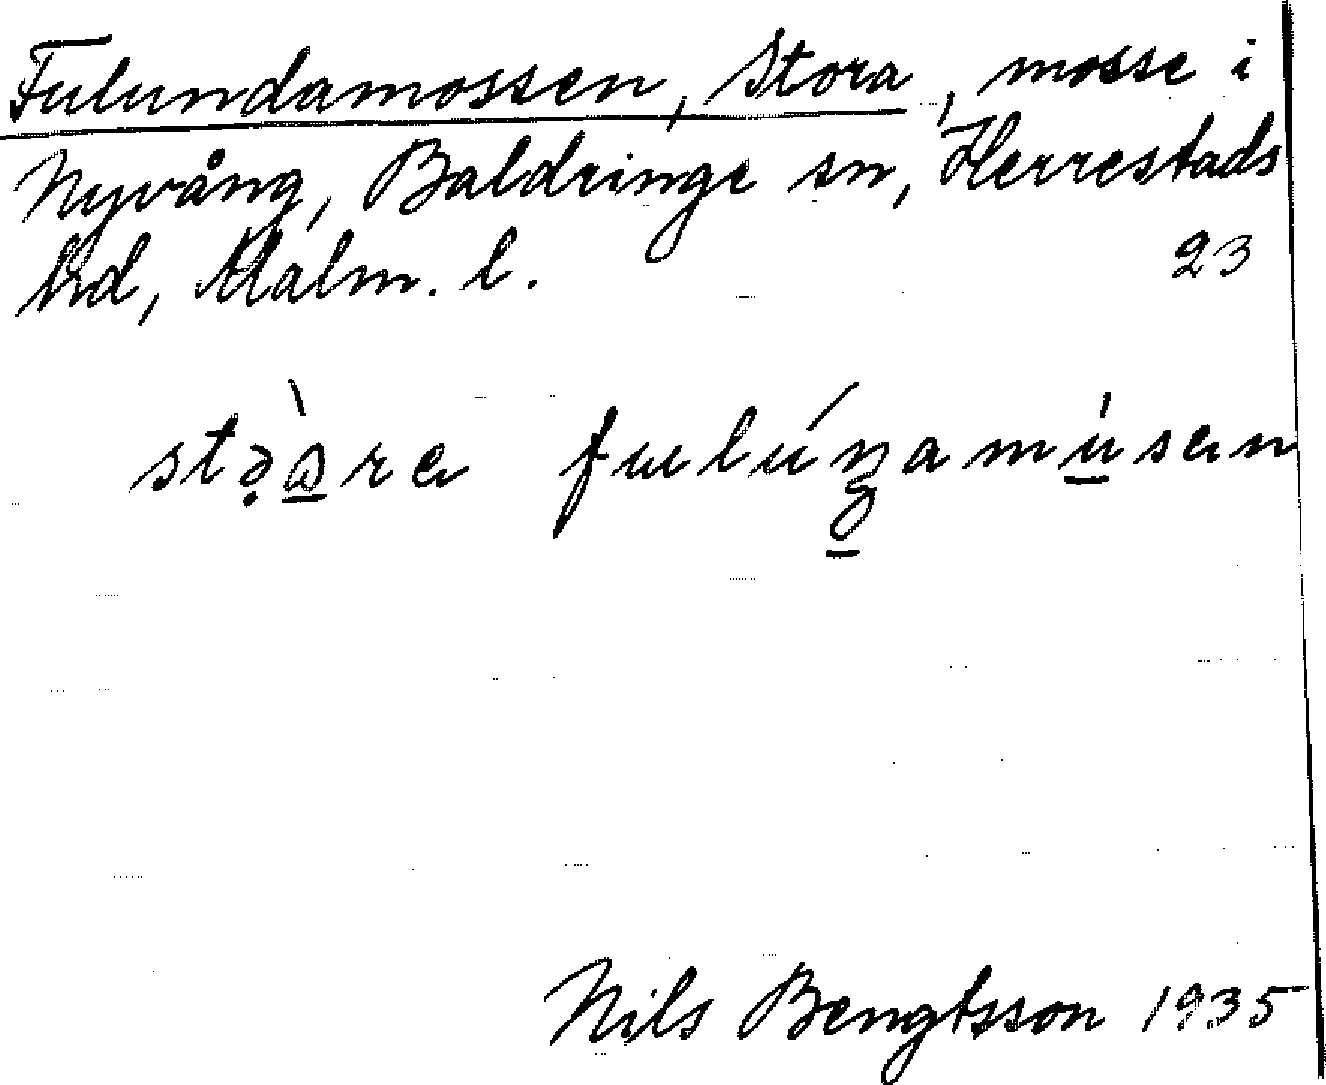 Fulundamossen, Stora, mosse i
Nyvång, Baldringe sn, Herrestads
hd, Malm. l.
23
Nils Bengtsson 1935